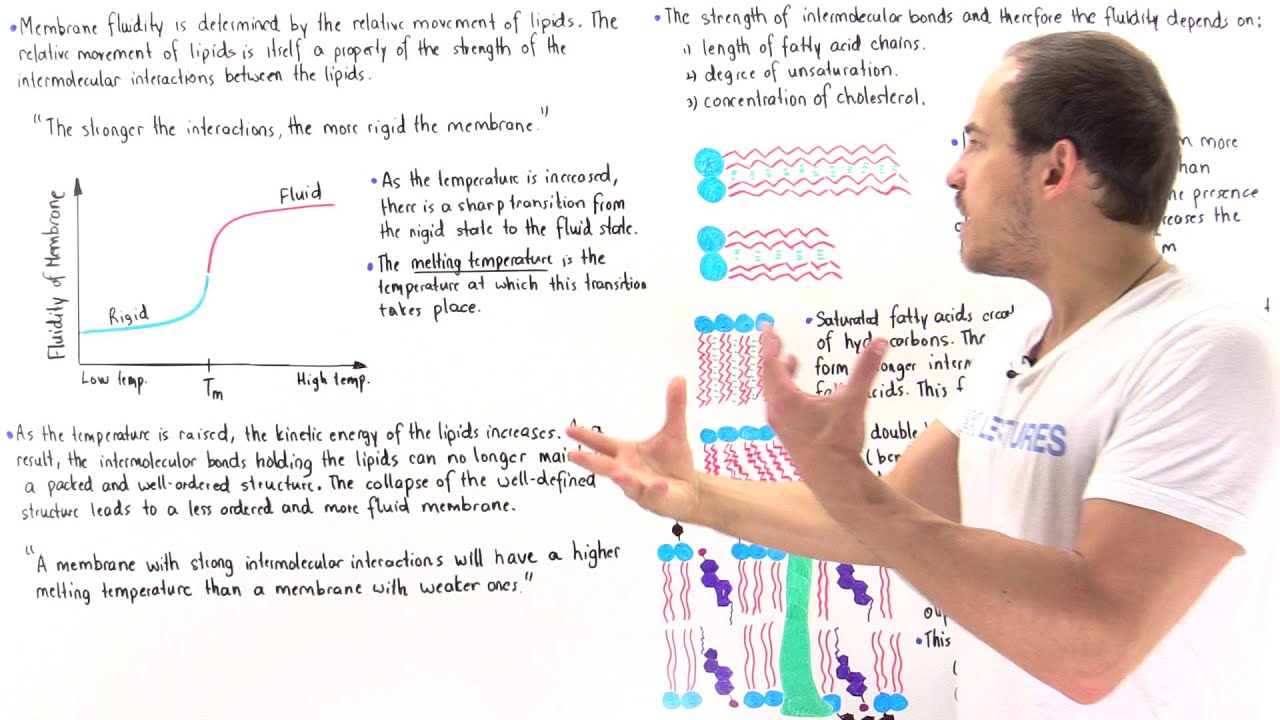 • Membrane fluidity is determined by the relative movement of lipids. The
relative movement of lipids is itself a property of the strength of the
intermolecular interactions between the lipids.
"The stronger the interactions, the more rigid the membrane."
Fluidity of Membrane
Fluid
Rigid
Low temp.
Tm
High temp.
• As the temperature is increased,
there is a sharp transition from
the rigid state to the fluid state.
• The melting temperature is the
temperature at which this transition
takes place.
• As the temperature is raised, the kinetic energy of the lipids increases. As a
result, the intermolecular bonds holding the lipids can no longer
a packed and well-ordered structure. The collapse of the well-defined
structure leads to a less ordered and more fluid membrane.
"A membrane with strong intermolecular interactions will have a higher
melting temperature than a membrane with weaker ones."
• The strength of intermolecular bonds and therefore the fluidity depends on:
1) length of fatty acid chains.
2) degree of unsaturation.
3) concentration of cholesterol.
more
presence
the
• Saturated fatty acids
of hydrocarbons.
form
This
double
• This
LECTURES